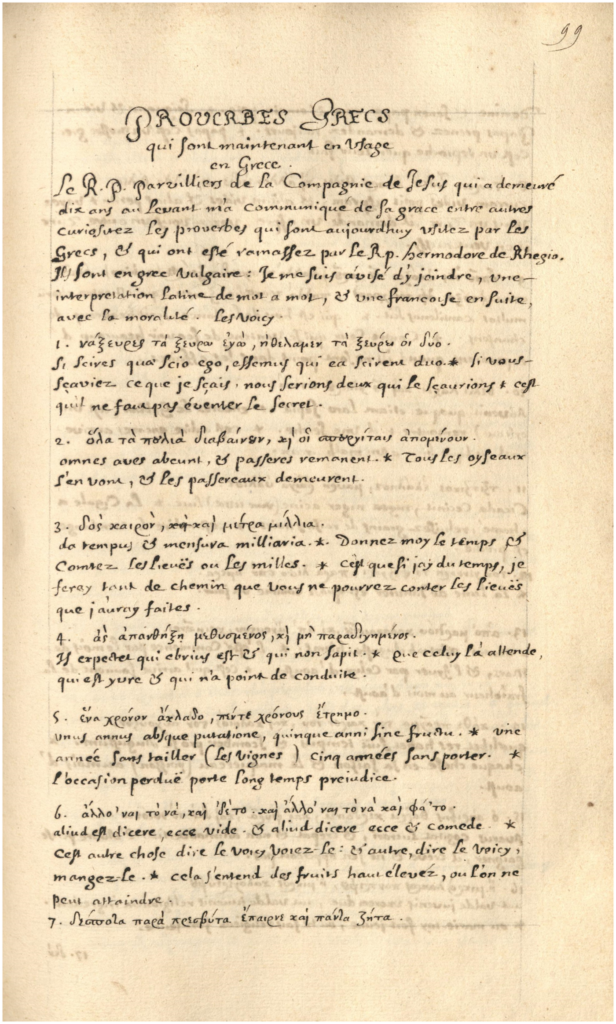 99
PROUERBES GRECS
qui sont maintenant en Vsage
en Grece.
Le R. P. Parvilliers de la Compagnie de Jesus qui a demeuré
dix ans au levant m'a communiqué de sa grace entre autres
curiositez les proverbes qui sont aujourdhuy vsitez par les
Grecs, & qui ont esté ramassez par le R p. hermodore de Rhegio.
Ils sont en grec vulgaire: Je me suis avisé d'y joindre, vne
interpretation latine de mot a mot, & vne francoise en suite,
avec la moralité. les voicy.
1. νάξευρες τὰ ξεύρω ἐγὼ, ἠθέλαμεν τὰ ξεύρω οἱ δύο.
Si scires quæ scio ego, essemus qui ea scirent duo. * si vous
sçaviez ce que je sçais: nous serions deux qui le sçaurions + c'est
qu'il ne faut pas éventer le secret.
2. ὅλα τὰ πουλιὰ διαβαίνουν, κὶ οἱ
omnes aves abeunt, & passeres remanent. * Tous les oyseaux
s'en vont, & les passereaux demeurent.
3. δὸς καιρὸν, καὶ μέτρα μίλλια.
da tempus & mensura milliaria. * Donnez moy le temps &
Contez les lieuës ou les milles. * C'est que si j'ay du temps, je
feray tant de chemin que vous ne pourrez conter les lieuës
que j'auray faites.
4. ἂς μεθυσμένος, κὶ μὴ
Is expectet qui ebrius est & qui non sapit. * que celuy là attende,
qui est yvre & qui n'a point de conduite.
5. ἕνα χρόνον ἄκλαδο, πέντε χρόνους ἔτρημο.
vnus annus absque putatione, quinque anni sine fructu. * vne
année sans tailler (les vignes) cinq années sans porter. *
l'occasion perduë porte long temps prejudice.
6. ἄλλο 'ναι το νὰ, καὶ δὲ το. καὶ ἄλλο 'ναι το νὰ καὶ φά' το.
aliud est dicere, ecce vide. & aliud dicere ecce & comede. *
C'est autre chose dire le voicy voiez-le: & autre, dire le voicy,
mangez-le. * cela s'entend des fruits haut élevez, ou l'on ne
peut attaindre.
7. παρὰ πρεσβύτα ἔπαιρνε καὶ πάντα ζήτα.